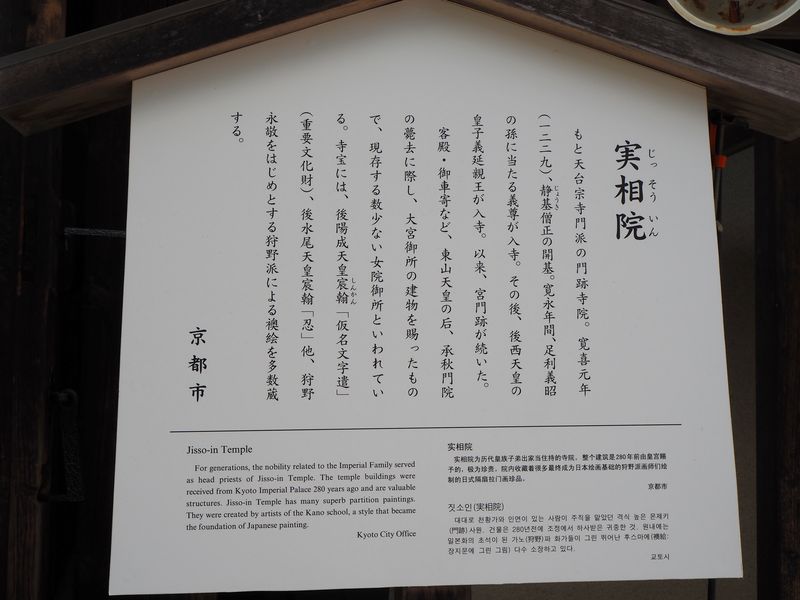 実相院
じっそういん
もと天台宗寺門派の門跡寺院。寛喜元年
(一二二九)、静基僧正の開基。寛永年間、足利義昭
じょうき
の孫に当たる義尊が入寺。その後、後西天皇の
皇子義延親王が入寺。以来、宮門跡が続いた。
客殿・御車寄など、東山天皇の后、承秋門院
の薨去に際し、大宮御所の建物を賜ったもの
で、現存する数少ない女院御所といわれてい
る。寺宝には、後陽成天皇宸翰「仮名文字遣」
しんかん
(重要文化財)、後水尾天皇宸翰「忍」他、狩野
永敬をはじめとする狩野派による襖絵を多数蔵
する。
京都市
Jisso-in Temple
For generations, the nobility related to the Imperial Family served
as head priests of Jisso-in Temple. The temple buildings were
received from Kyoto Imperial Palace 280 years ago and are valuable
structures. Jisso-in Temple has many superb partition paintings.
They were created by artists of the Kano school, a style that became
the foundation of Japanese painting.
Kyoto City Office
实相院
实相院为历代皇族子弟出家当住持的寺院。整个建筑是280年前由皇宫赐
予的，极为珍贵。院内收藏着很多最终成为日本绘画基础的狩野派画师们绘
制的日式隔扇拉门画珍品。
京都市
짓소인(実相院)
대대로 천황가와 인연이 있는 사람이 주직을 맡았던 격식 높은 몬제키
(門跡)사원. 건물은 280년전에 조정에서 하사받은 귀중한 것. 원내에는
일본화의 초석이 된 가노(狩野)파 화가들이 그린 뛰어난 후스마에(襖絵:
장지문에 그린 그림) 다수 소장하고 있다.
교토시